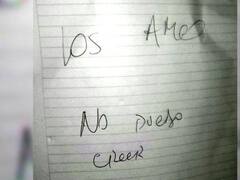 LOS AMO
No puedo
creer